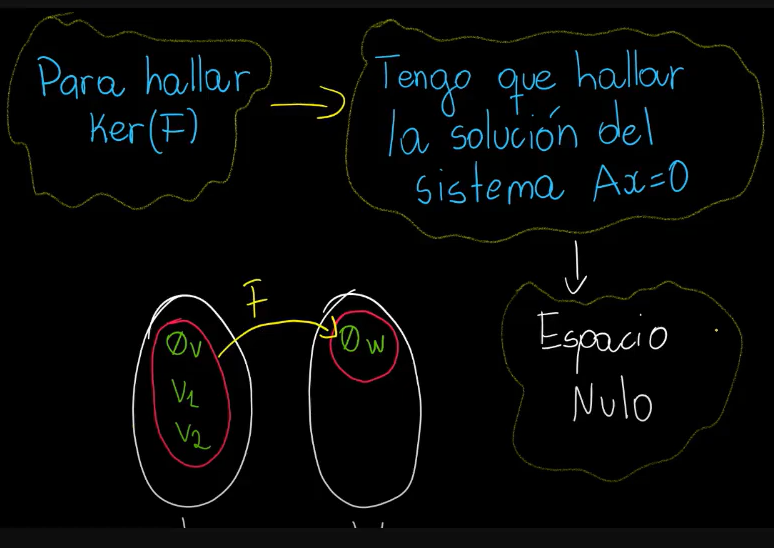 Para hallar
Ker(F)
Tengo que hallar
la solución del
sistema Ax=0
F
Espacio
Nulo
0v
V1
V2
0w